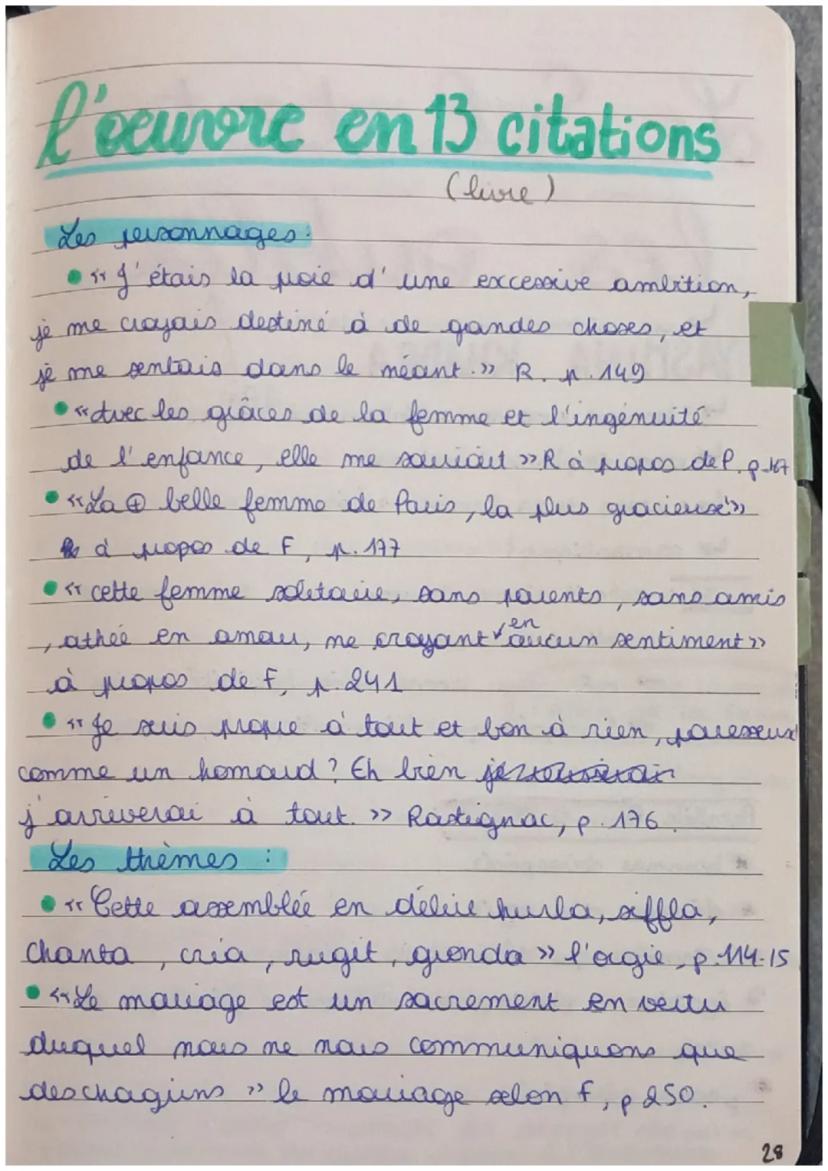 l'oeuvre en 13 citations
(livre)
Les personnages :
• « J'étais la proie d'une excessive ambition,
je me croyais destiné à de grandes choses, et
je me sentais dans le néant. » R. p. 149
• « Avec les grâces de la femme et l'ingénuité
de l'enfance, elle me souriait » R à propos de P. p.167
• « La ⊕ belle femme de Paris, la plus gracieuse »
à propos de F, p. 177
• « cette femme solitaire, sans parents, sans amis
, athée en amour, ne croyant en aucun sentiment »
à propos de F, p. 241
• « Je suis propre à tout et bon à rien, paresseux
comme un homard ? Eh bien
j'arriverai à tout. » Rastignac, p. 176.
Les thèmes :
• « Cette assemblée en délire hurla, siffla,
chanta, cria, rugit, gronda » l'orgie, p. 114-15
• « Le mariage est un sacrement en vertu
duquel nous ne nous communiquons que
des chagrins » le mariage selon F, p 250.
28